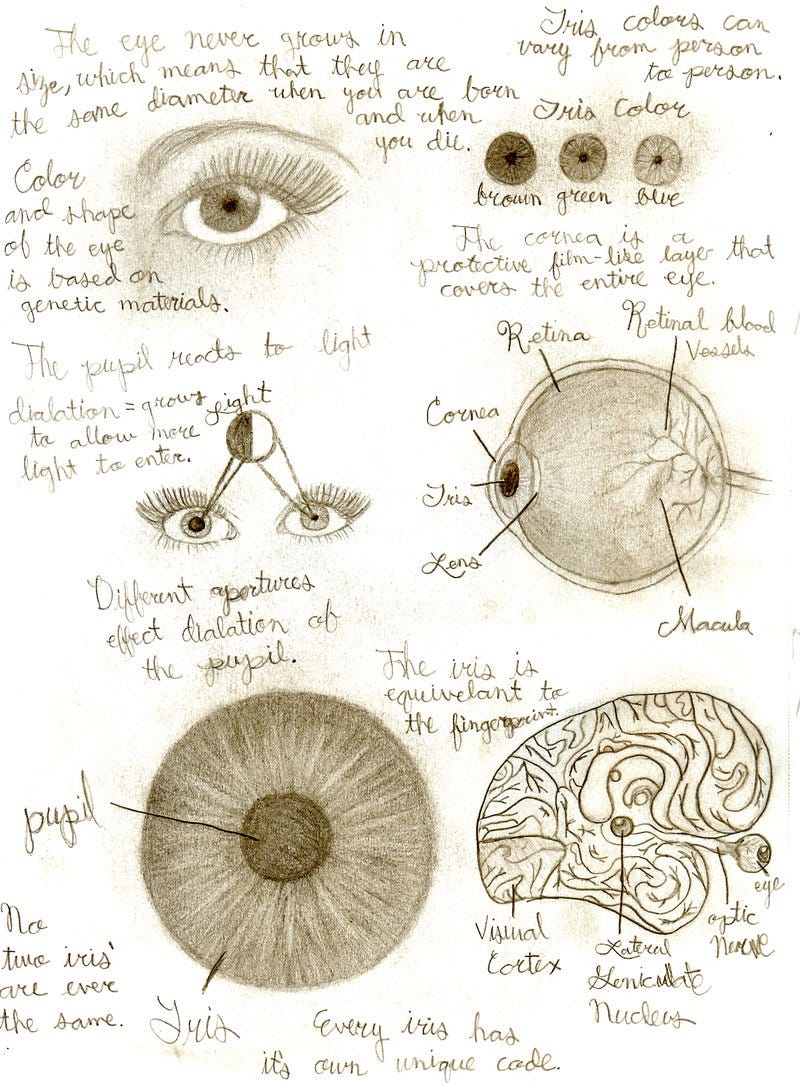 The eye never grows in
size, which means that they are
the same diameter when you are born
and when
you die.
Iris colors can
vary from person
to person.
Iris Color
brown green blue
Color
and shape
of the eye
is based on
genetic materials.
The cornea is a
protective film-like layer that
covers the entire eye.
The pupil reacts to light
dialation = grows
to allow more
light to enter.
Light
Retina
Retinal blood
Vessels
Cornea
Iris
Lens
Macula
Different apertures
effect dialation of
the pupil.
The iris is
equivelant to
the fingerprint.
pupil
Iris
No
two iris'
are ever
the same.
Every iris has
it's own unique code.
Visual
Cortex
Lateral
Geniculate
Nucleus
optic
Nerve
eye